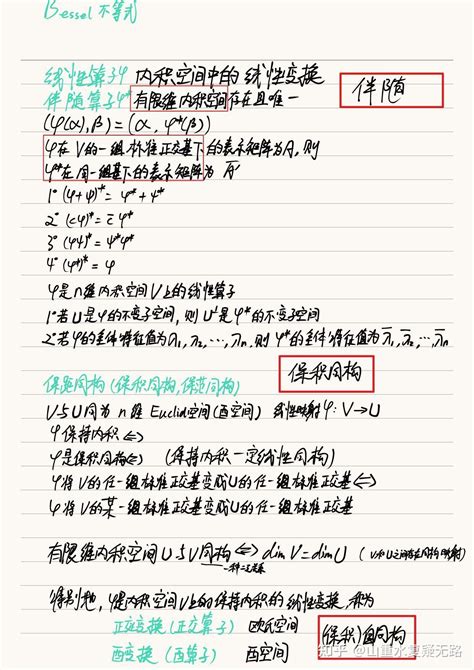 Bessel 不等式
线性算子φ 内积空间中的线性变换
伴随
伴随算子φ* 有限维内积空间存在且唯一
(φ(α),β)=(α, φ*(β))
φ在V的一组标准正交基下的表示矩阵为A,则
φ*在同一组基下的表示矩阵为 Ā'
1° (φ+ψ)*=φ*+ψ*
2° (cφ)*=c̄φ*
3° (φψ)*=ψ*φ*
4° (φ*)*=φ
φ是n维内积空间V上的线性算子
1°若U是φ的不变子空间, 则U⊥是φ*的不变子空间
2°若φ的全体特征值为λ1,λ2,⋯,λn,则φ*的全体特征值为λ̄1,λ̄2,⋯,λ̄n
保积同构
保范同构 (保积同构,保范同构)
V与U同为n维Euclid空间(酉空间) 线性映射φ:V→U
φ保持内积⇔
φ是保积同构⇔ (保持内积一定线性同构)
φ将V的任一组标准正交基变成U的任一组标准正交基⇔
φ将V的某一组标准正交基变成U的任一组标准正交基
有限维内积空间U与V同构⇔dimV=dimU (V和U之间存在同构映射)
特别地, φ是内积空间V上的保持内积的线性变换,称为
正交变换(正交算子) 欧氏空间
保积自同构
酉变换 (酉算子) 酉空间
知乎 @山重水复疑无路